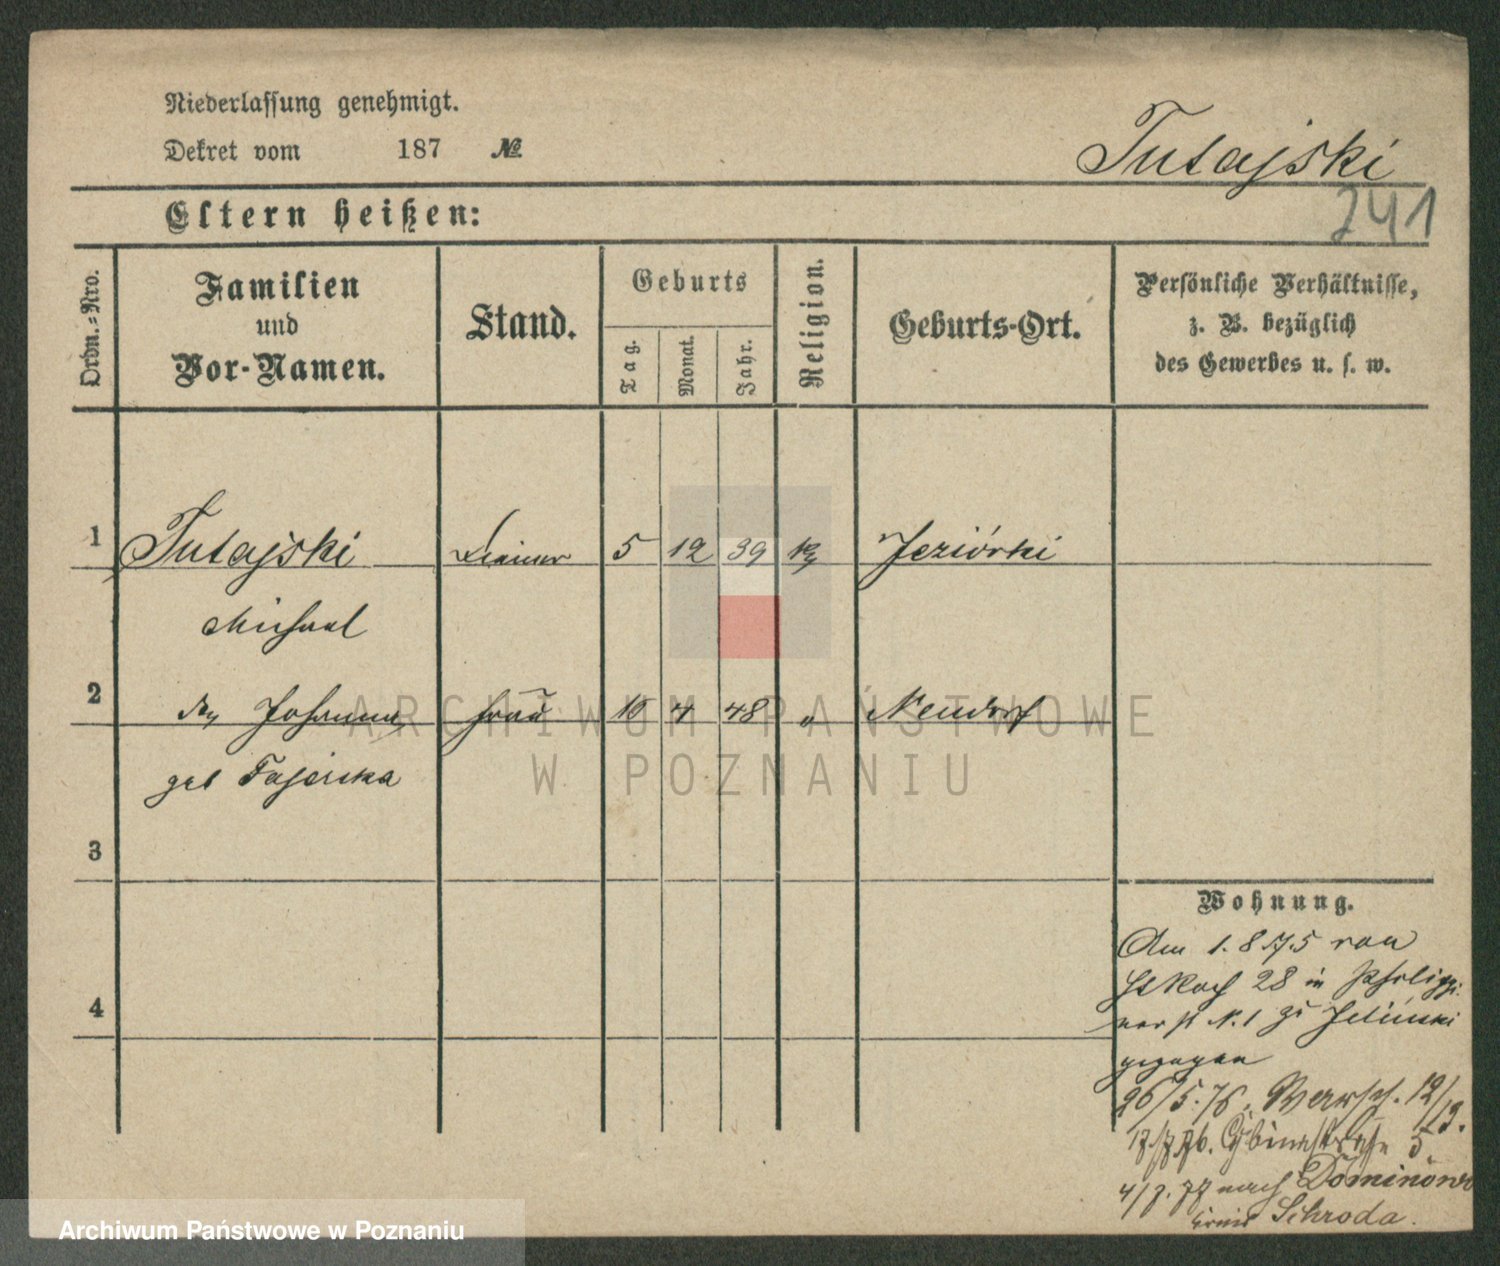 Niederlassung genehmigt.
Dekret vom 187 №
Tutajski
241
Eltern heißen:
Ordn.-Nro.
Familien
und
Vor-Namen.
Stand.
Geburts
Tag.
Monat.
Jahr.
Religion.
Geburts-Ort.
Persönliche Verhältnisse,
z. B. bezüglich
des Gewerbes u. s. w.
1 Tutajski 5 12 39 Jeziórki
Michael
2 Johanna Frau 10 4 48 Neudorf
geb
3
4
Wohnung.
Am 1. 8 75 von
28 in
N. 1 zu
gezogen
26/5. 76. Warsch. 12/13.
5
nach Dominowo
Kreis Schroda.
ARCHIWUM PAŃSTWOWE
W POZNANIU
Archiwum Państwowe w Poznaniu